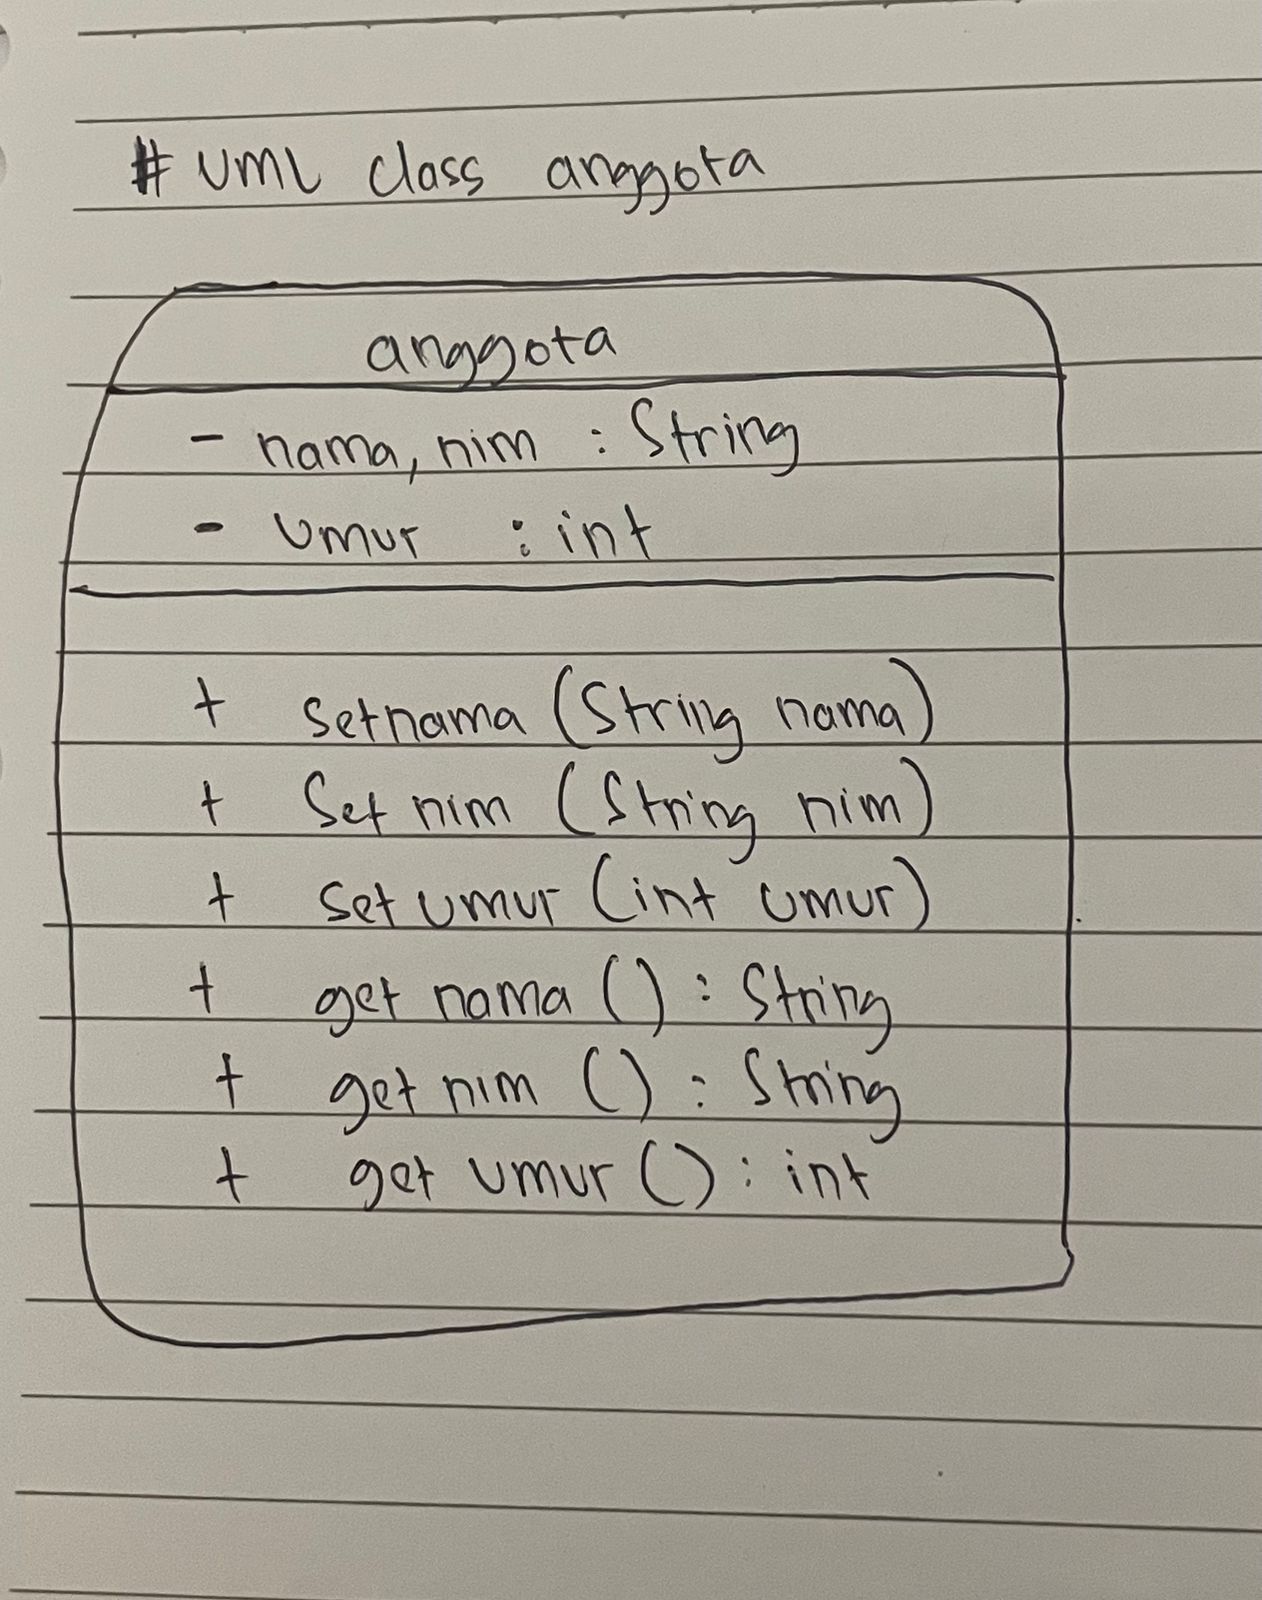 # UML class anggota
anggota
- nama, nim : String
- Umur : int
+ Setnama (String nama)
+ Set nim (String nim)
+ Set umur (int umur)
+ get nama () : String
+ get nim () : String
+ get umur () : int